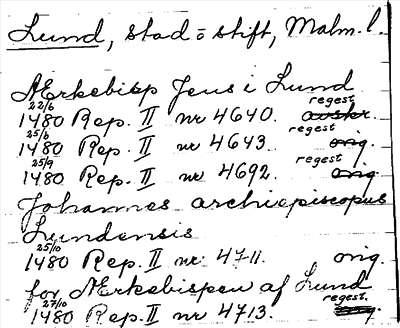 Lund, stad o shift, Malm. l.
Ærkebisp Jens i Lund
22/6 regest
1480 Rep. II nr 4640. avskr.
25/6 regest
1480 Rep. II nr 4643. orig.
25/9 regest
1480 Rep. II nr 4692. orig.
Johannes archiepiscopus
Lundensis
25/10
1480 Rep. II nr. 4711. orig.
for Ærkebispen af Lund
27/10 regest.
1480 Rep. II nr 4713. orig.